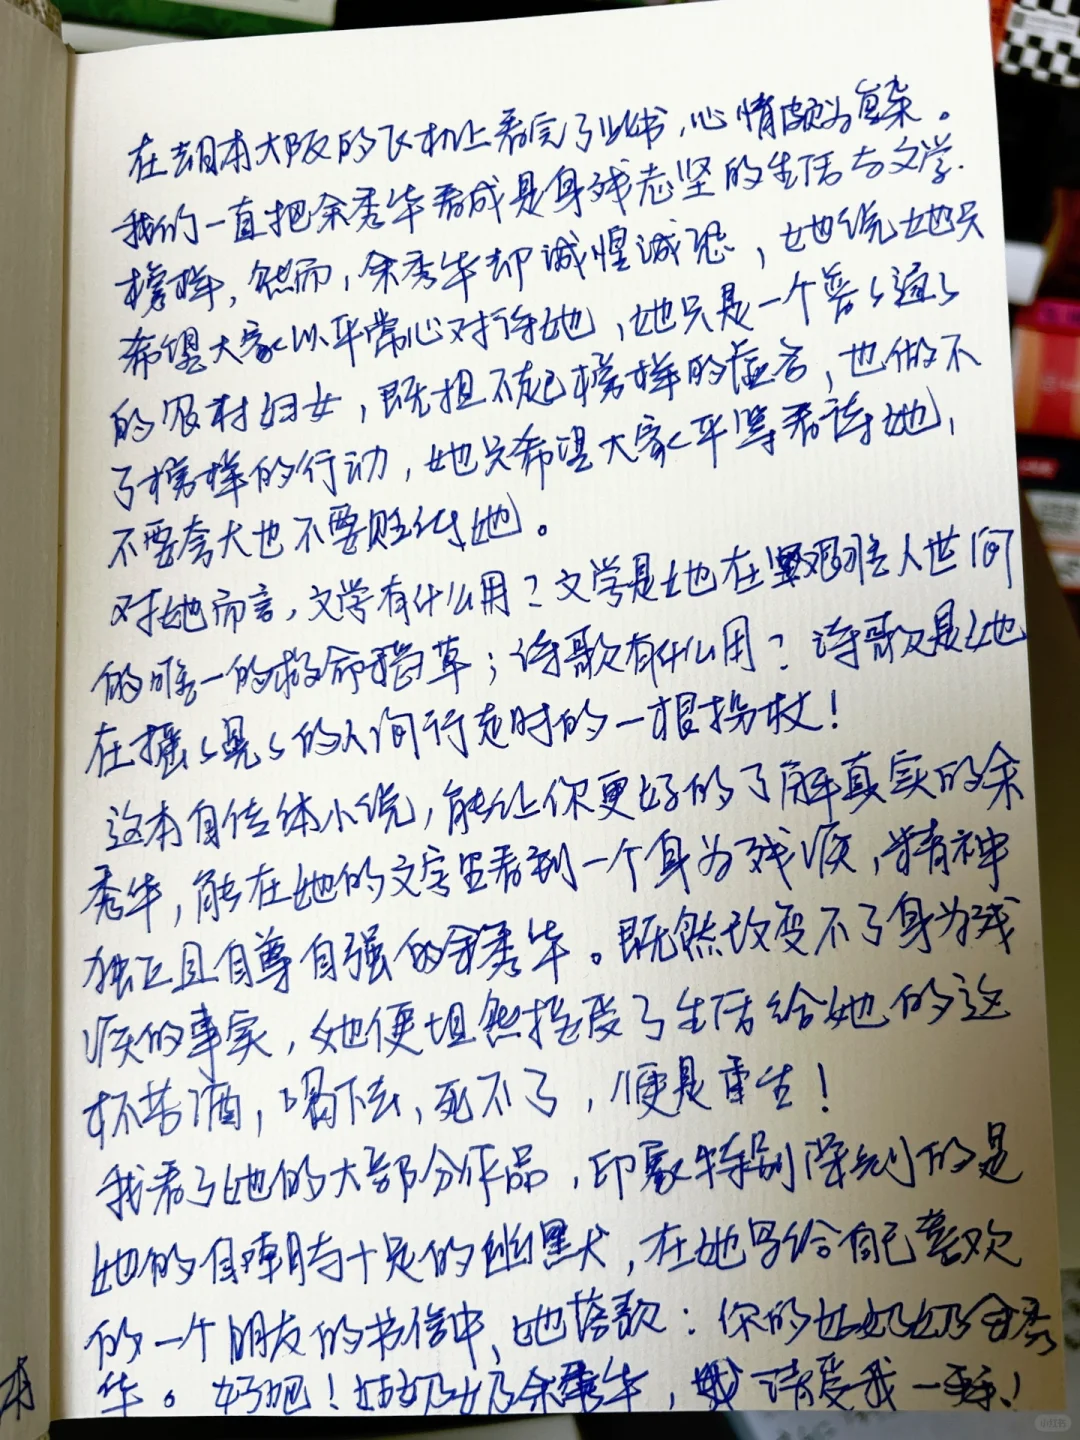 在去日本大阪的飞机上看完了此书，心情颇为复杂。
我们一直把余秀华看成是身残志坚的生活与文学
榜样，然而，余秀华却诚惶诚恐，她说她只
希望大家以平常心对待她，她只是一个普々通々
的农村妇女，既担不起榜样的虚名，也做不
了榜样的行动，她只希望大家平等看待她，
不要夸大也不要贬低她。
对她而言，文学有什么用？文学是她在艰难人世间
的唯一的救命稻草；诗歌有什么用？诗歌是她
在摇々晃々的人间行走时的一根拐杖！
这本自传体小说，能让你更好的了解真实的余
秀华，能在她的文字里看到一个身为残疾，精神
独立且自尊自强的余秀华。既然改变不了身为残
疾的事实，她便坦然接受了生活给她的这
杯苦酒，喝下去，死不了，便是重生！
我看了她的大部分作品，印象特别深刻的是
她的自嘲与十足的幽默，在她写给自己喜欢
的一个朋友的书信中，她落款：你的姑奶奶余秀
华。好吧！姑奶奶余秀华，请受我一拜！
本
小红书